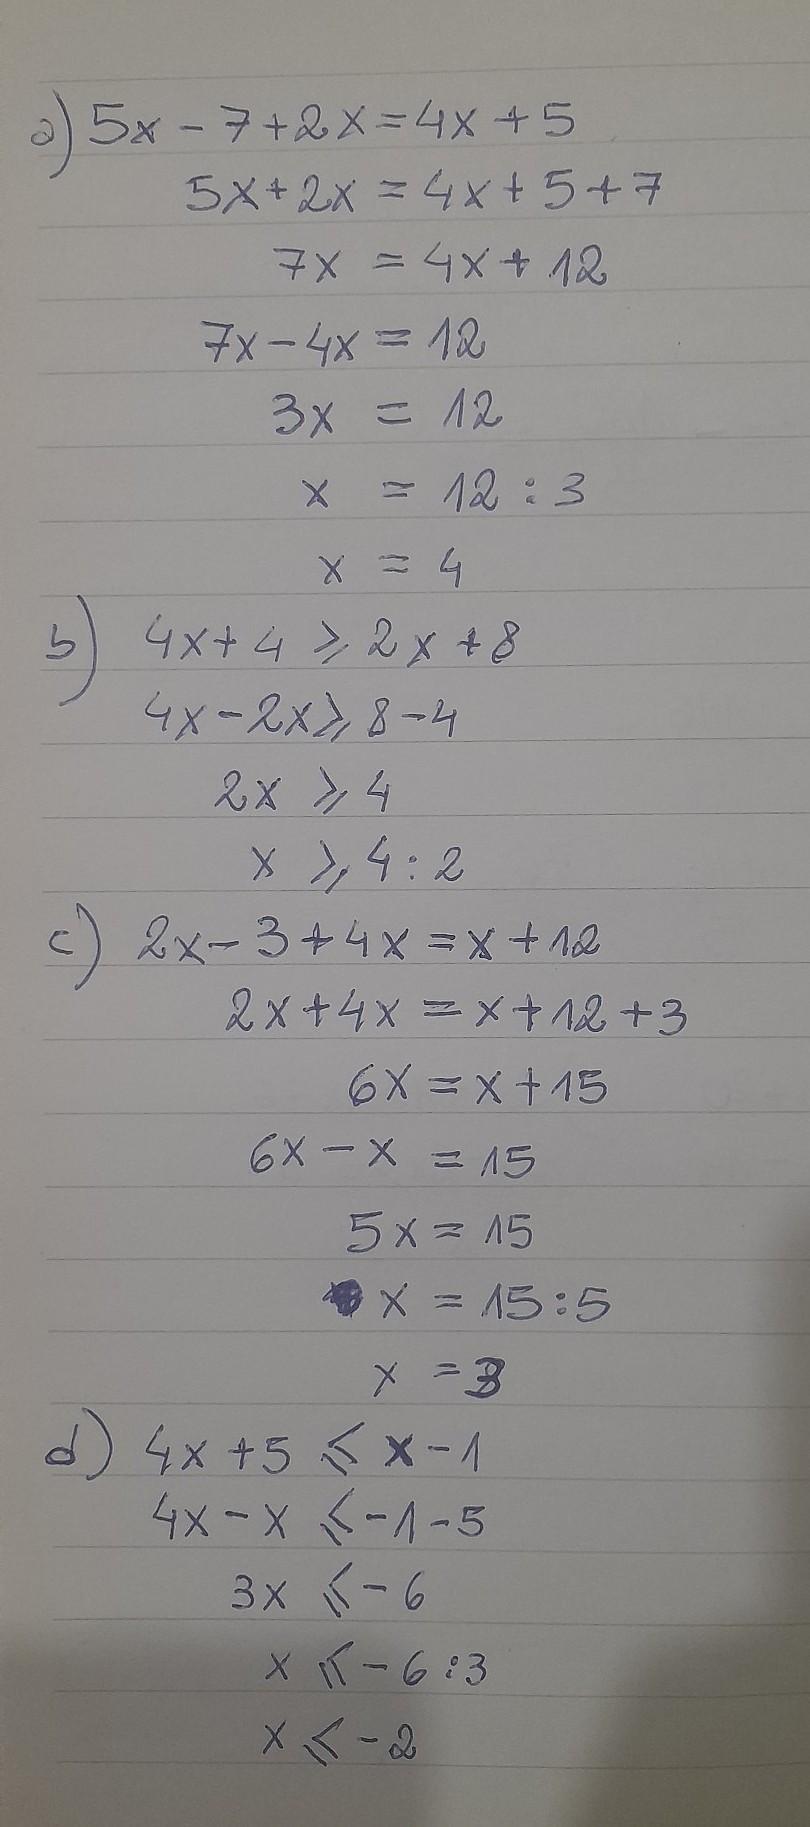 a) 5x - 7 + 2x = 4x + 5
5x + 2x = 4x + 5 + 7
7x = 4x + 12
7x - 4x = 12
3x = 12
x = 12 : 3
x = 4
b) 4x + 4 ⩾ 2x + 8
4x - 2x ⩾ 8 - 4
2x ⩾ 4
x ⩾ 4 : 2
c) 2x - 3 + 4x = x + 12
2x + 4x = x + 12 + 3
6x = x + 15
6x - x = 15
5x = 15
x = 15 : 5
x = 3
d) 4x + 5 ⩽ x - 1
4x - x ⩽ -1 - 5
3x ⩽ -6
x ⩽ -6 : 3
x ⩽ -2